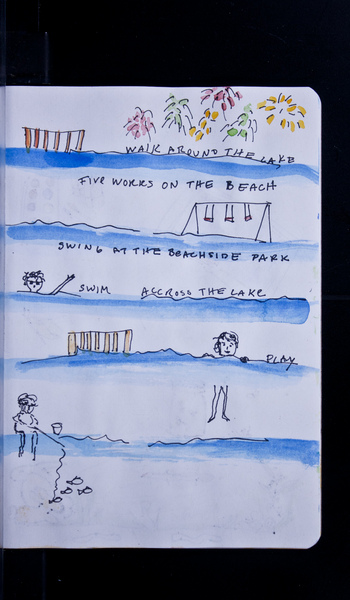 WALK AROUND THE LAKE
FIVE WORKS ON THE BEACH
SWING AT THE BEACHSIDE PARK
SWIM ACCROSS THE LAKE
PLAY